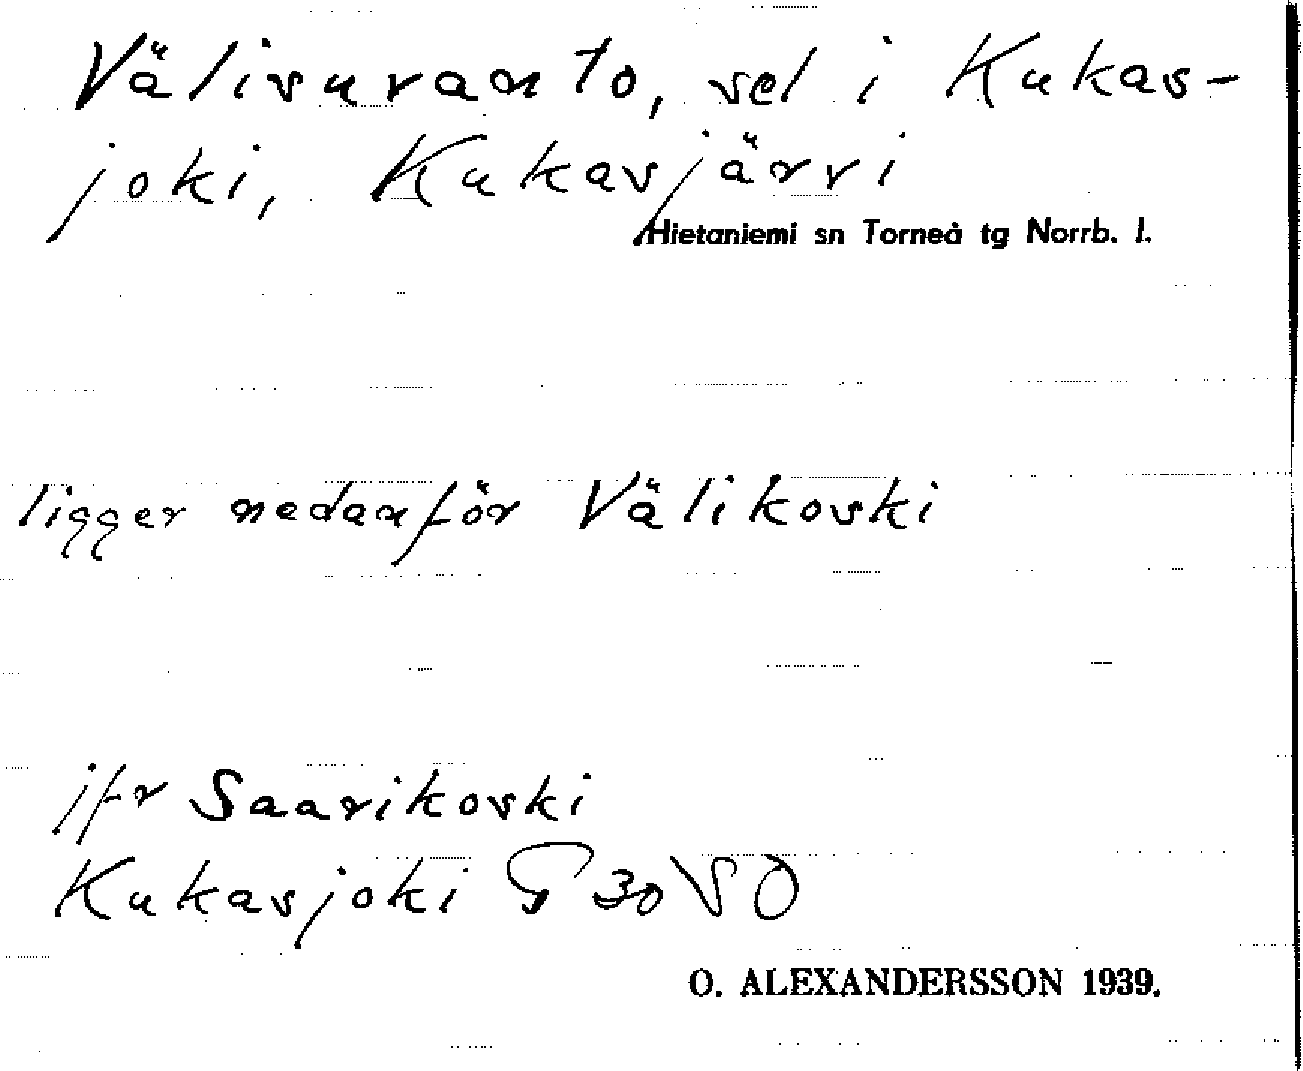 Välisuvanto, sel i Kukas-
joki, Kukasjärvi
Hietaniemi sn Torneå tg Norrb. l.
ligger nedanför Välikoski
jfr Saarikoski
Kukasjoki G 30 SO
O. ALEXANDERSSON 1939.